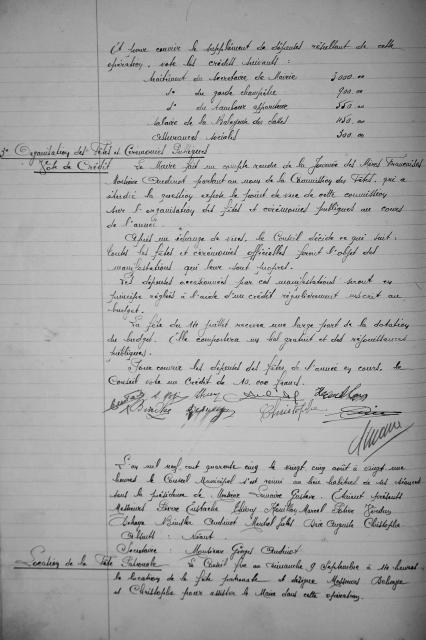 Et pour couvrir le supplément de dépenses résultant de cette
opération, vote les crédits suivants :
traitement du Secrétaire de Mairie 5000.00
d° du garde champêtre 900.00
d° du tambour afficheur 550.00
salaire de la Balayeuse des salles 450.00
assurances sociales 300.00
3° Organisation des Fêtes et Cérémonies Publiques
Vote de Crédit Le Maire fait un compte rendu de la Journée des Mères Françaises
Monsieur Audinot parlant au nom de la Commission des Fêtes, qui a
étudié la question expose le point de vue de cette commission
sur l'organisation des fêtes et cérémonies publiques au cours
de l'année.
Après un échange de vues, le Conseil décide ce qui suit :
toutes les fêtes et cérémonies officielles feront l'objet des
manifestations qui leur sont propres.
Les dépenses occasionnées par ces manifestations seront en
principe réglées à l'aide d'un crédit régulièrement inscrit au
budget.
La fête du 14 juillet recevra une large part de la dotation
du budget. Elle comportera un bal gratuit et des réjouissances
publiques.
Pour couvrir les dépenses des fêtes de l'année en cours, le
Conseil vote un Crédit de 10.000 francs.
Christophe
L'an mil neuf cent quarante cinq le vingt cinq août à vingt une
heures le Conseil Municipal s'est réuni au lieu habituel de ses séances
sous la présidence de Gustave. Étaient présents
Messieurs Pierre Eustache Thiery Marcel
Audinot Auguste Christophe
Absents : Néant
Secrétaire : Monsieur Audinot
Location de la Fête Patronale Le Conseil fixe au dimanche 9 Septembre à 14 heures
la location de la fête patronale et désigne Messieurs
et Christophe pour assister le Maire dans cette opération.